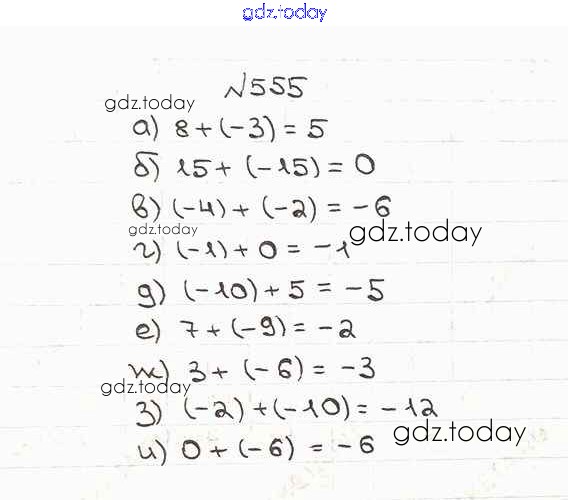 gdz.today
№555
gdz.today
а) 8 + (-3) = 5
б) 15 + (-15) = 0
в) (-4) + (-2) = -6
gdz.today
gdz.today
г) (-1) + 0 = -1
д) (-10) + 5 = -5
е) 7 + (-9) = -2
ж) 3 + (-6) = -3
gdz.today
з) (-2) + (-10) = -12
gdz.today
и) 0 + (-6) = -6